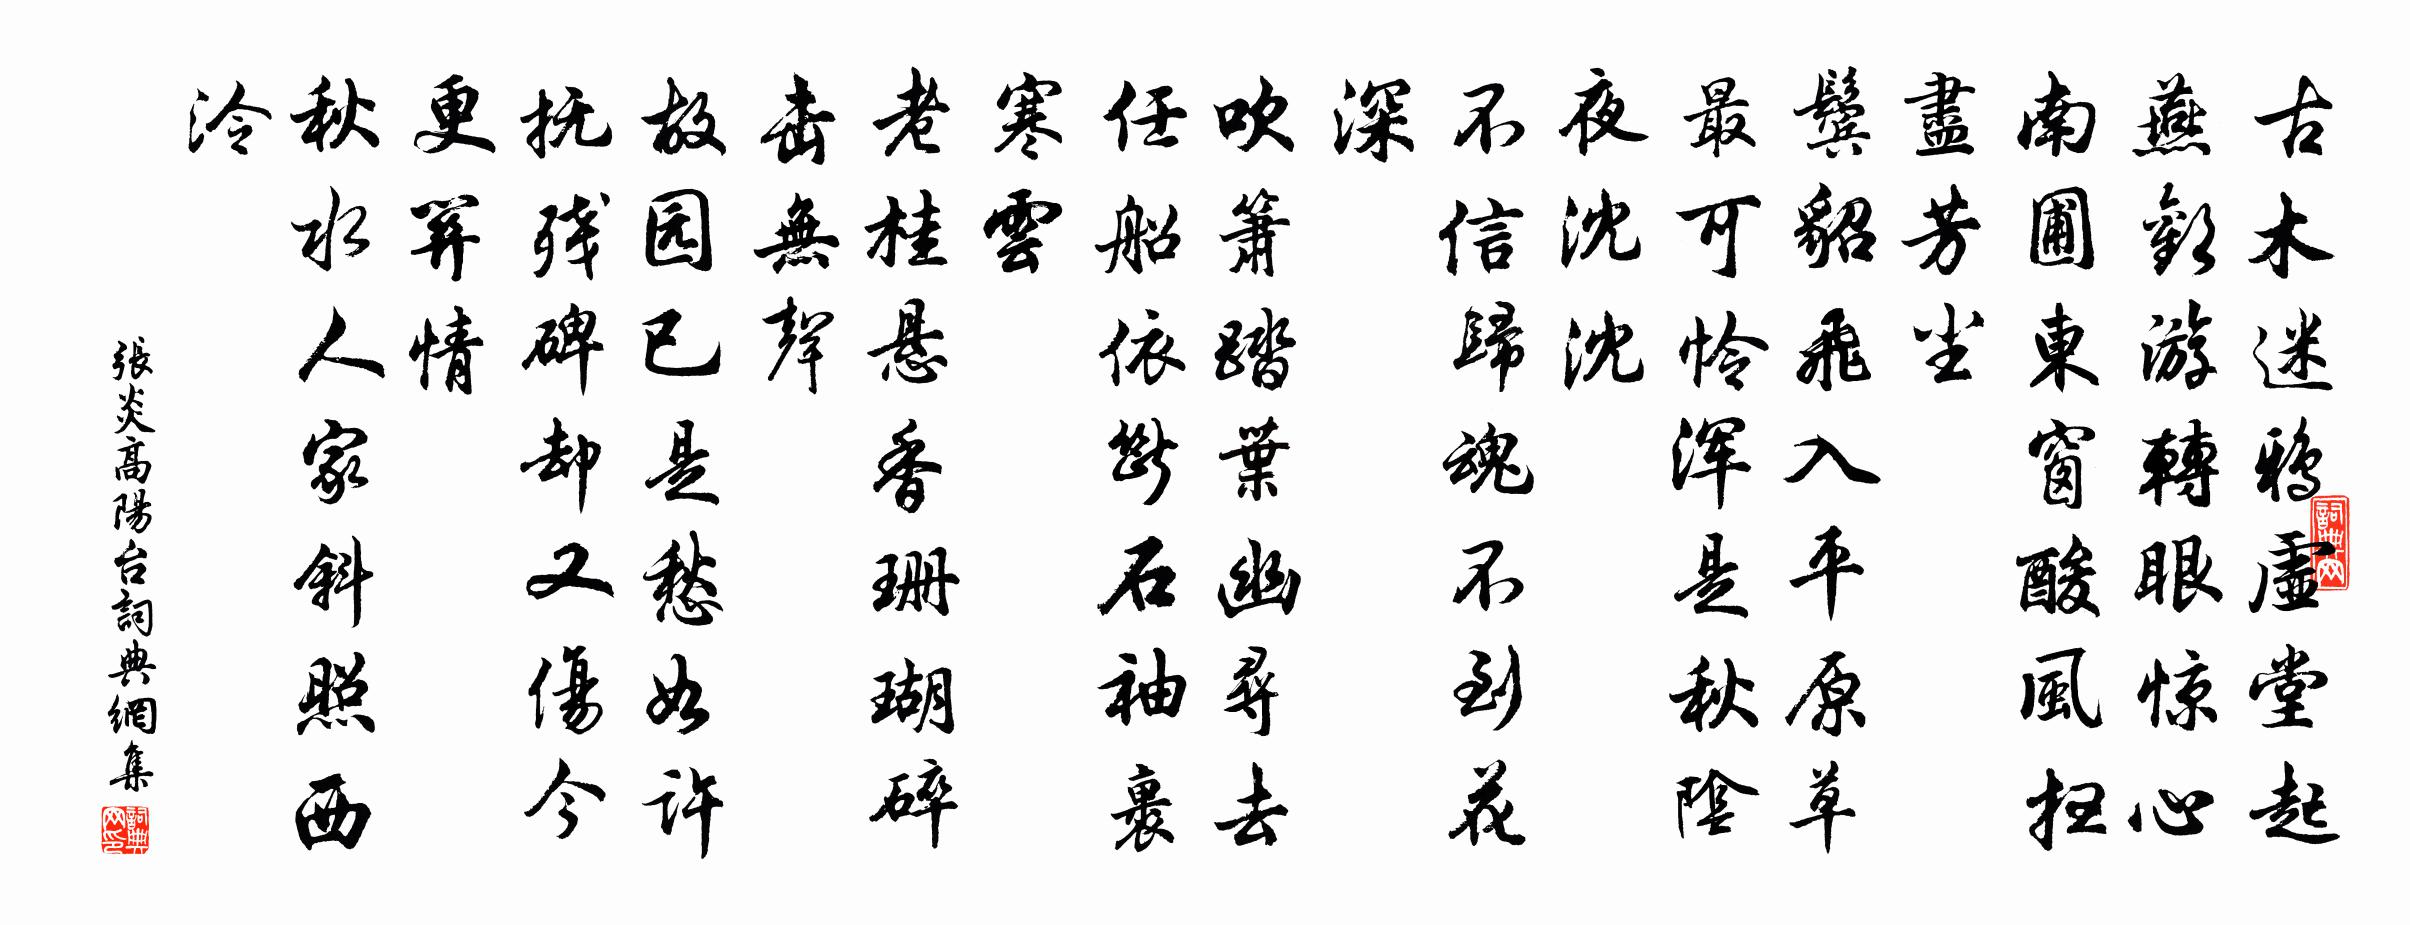 古木迷鸦虚堂起
燕歡游轉眼惊心
南圃東窗酸風扫
盡芳尘
鬓貂飛入平原草
最可怜浑是秋陰
夜沈沈
不信歸魂不到花
深
吹簫踏葉幽尋去
任船依断石袖裹
寒雲
老桂悬香珊瑚碎
击無聲
故园已是愁如许
抚残碑却又傷今
更関情
秋水人家斜照西
泠
張炎高陽台詞典網集
詞典网
詞典网印